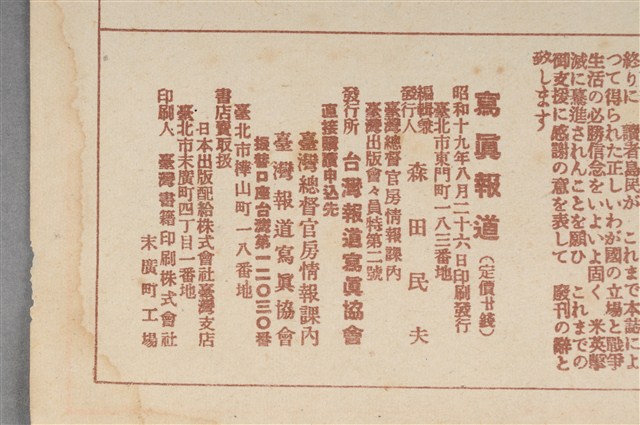 終りに 讀者島民が これまで本誌によ
つて得られた正しいわが國の立場と戰爭
生活の必勝信念をいよいよ固く 米英擊
滅に驀進されんことを願ひ これまでの
御支援に感謝の意を表して 廢刊の辭と
致します
寫眞報道 (定價廿錢)
昭和十九年八月二十六日印刷發行
臺北市東門町一八三番地
編輯兼
發行人 森田民夫
臺灣總督官房情報課內
臺灣出版會々員特第二號
發行所 台灣報道寫眞協會
直接購讀申込先
臺灣總督官房情報課內
臺灣報道寫眞協會
振替口座台灣第一二〇三〇番
臺北市樺山町一八番地
書店賣取扱
日本出版配給株式會社臺灣支店
臺北市末廣町四丁目一番地
印刷人 臺灣書籍印刷株式會社
末廣町工場